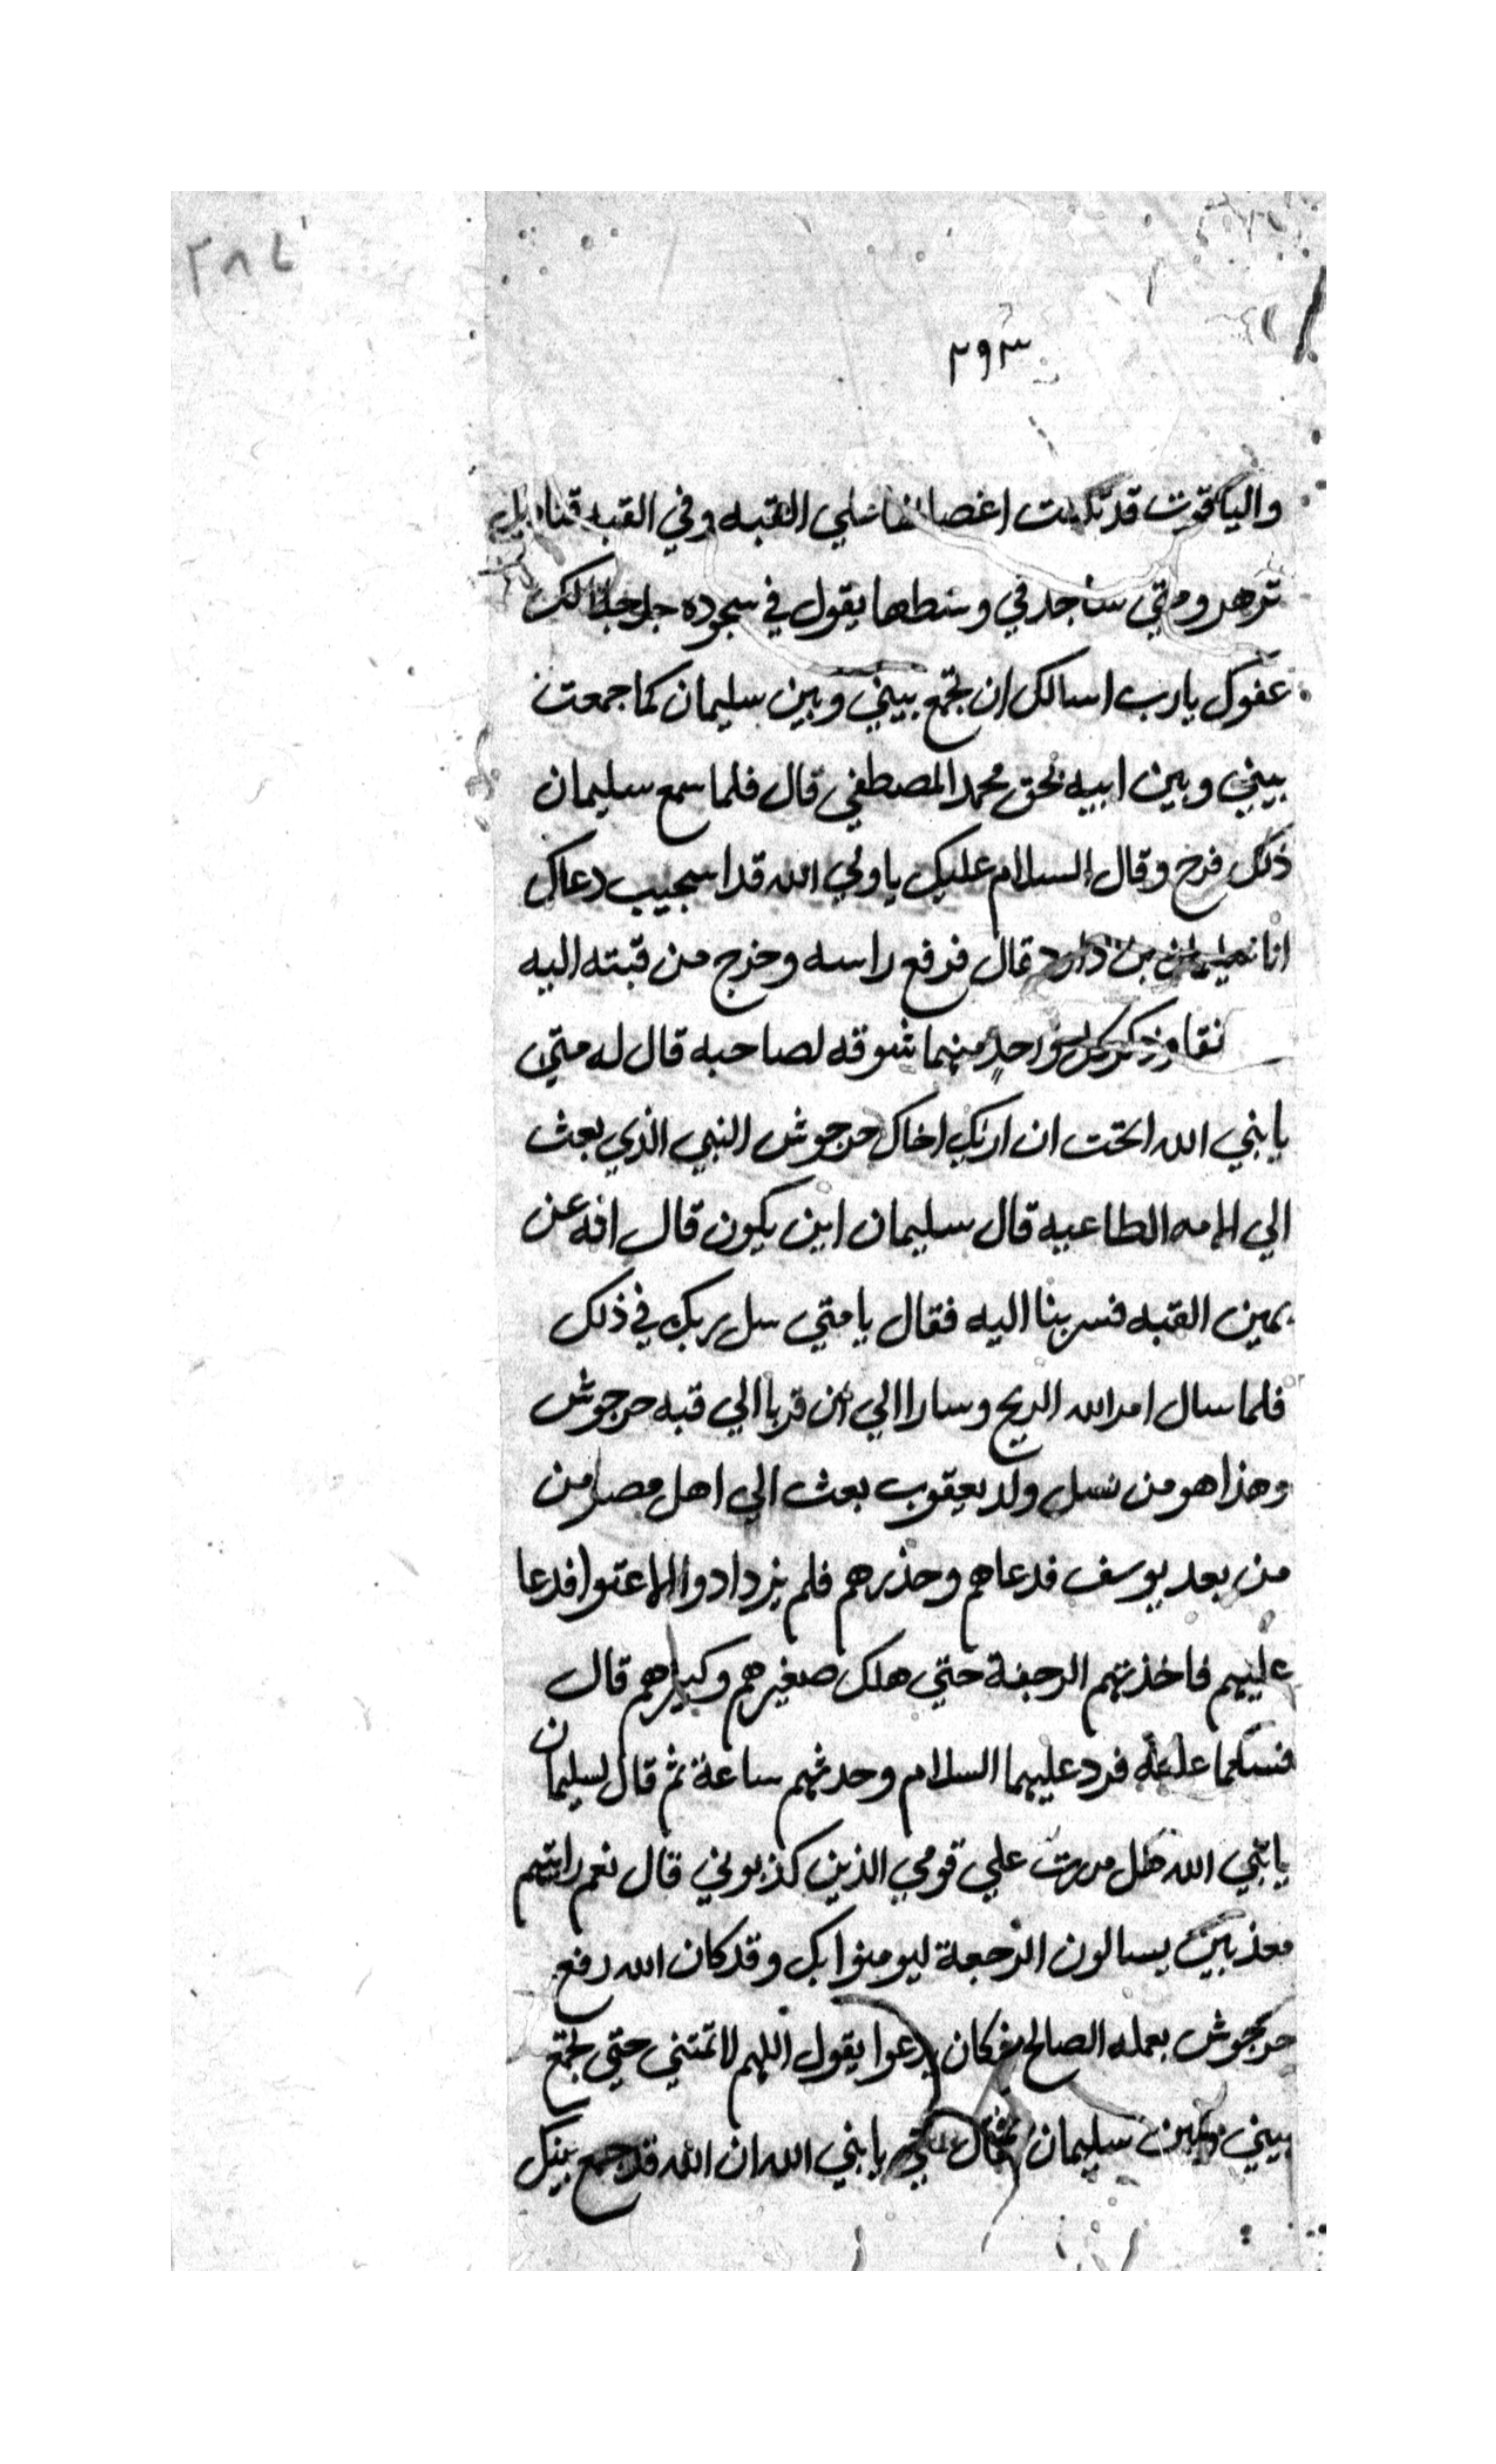 ٢٨٤
٢٩٣
والياقوت قد تكست اغصانها علي القبه وفي القبه قناديل
تزهر ومتي ساجد في وسطها يقول في سجوده جل جلالك
عفوك يارب اسالك ان تجمع بيني وبين سليمان كما جمعت
بيني وبين ابيه بحق محمد المصطفي قال فلما سمع سليمان
ذلك فرح وقال السلام عليك ياولي الله قد اسجيب دعاك
انا سليمان بن داود قال فرفع راسه وخرج من قبته اليه
كل واحد منهما شوقه لصاحبه قال له متي
يا نبي الله اتحت ان اريك اخاك حرجوش النبي الذي بعث
الي الامه الطاعيه قال سليمان اين يكون قال انه عن
يمين القبه فسر بنا اليه فقال يا متي سل ربك في ذلك
فلما سال امر الله الريح وسارا الي ان قربا الي قبه حرجوش
وهذا هو من نسل ولد يعقوب بعث الي اهل مصر من
من بعد يوسف فدعاهم وحذرهم فلم يزدادوا الا عتوا فدعا
عليهم فاخذتهم الرجفة حتي هلك صغيرهم وكبيرهم قال
فسلما عليه فرد عليهما السلام وحدثهم ساعة ثم قال لسليمان
يا نبي الله هل مررت علي قومي الذين كذبوني قال نعم رايتهم
معذبين يسالون الرجعة ليومنوا بك وقد كان الله رفع
حرجوش بعمله الصالح فكان يدعوا يقول اللهم لا تمتني حتي تجمع
بيني وبين سليمان فقال متي يا نبي الله ان الله قد جمع بينك